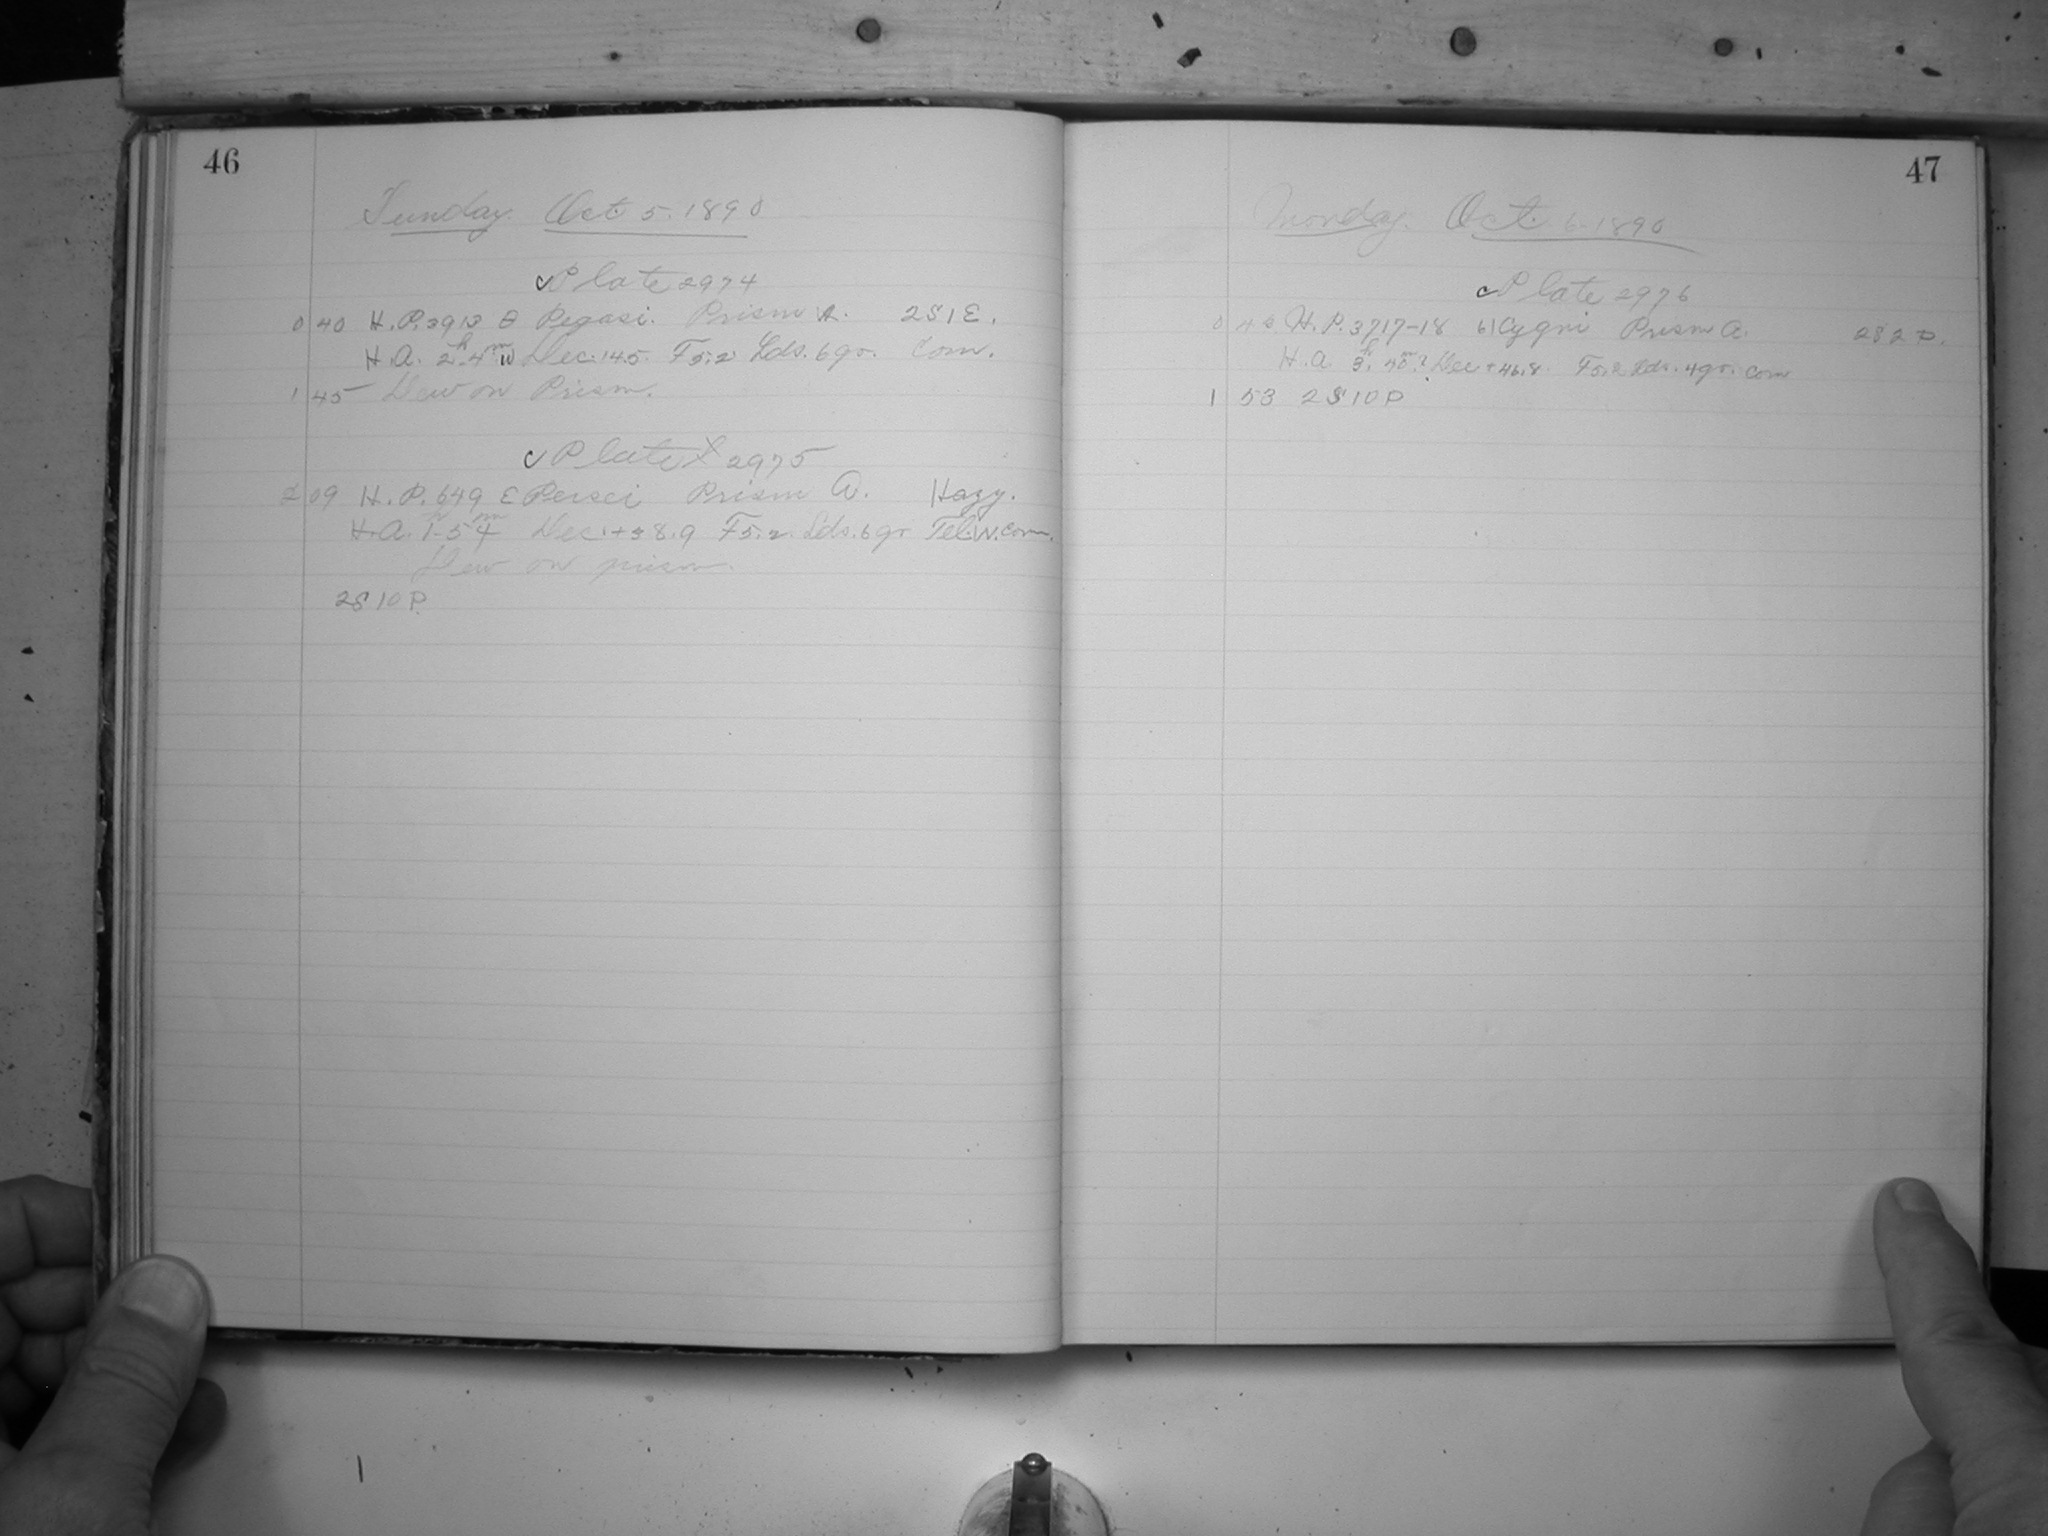 46
Sunday. Oct. 5. 1890
Plate 2974
0 40 H.P. 3913 θ Pegasi. Prism A. 2S1E.
H.A. 2h-4m W Dec. 14.5. F5.2 Lds. 6gr. Com.
1 45 Dew on Prism.
Plate X 2975
2 09 H.P. 649 ε Persei Prism A. Hazy.
H.A. 1h-54m Dec. +38.9 F5.2. Lds. 6gr Tel. W. Com.
Dew on prism.
2S10P.
47
Monday. Oct. 6. 1890
Plate 2976
0 H.P. 3717-18 61 Cygni Prism A. 2S2P.
H.A. 3h. Dec +46.8. F5.2 Lds. 4gr. Com
1 53 2S10P